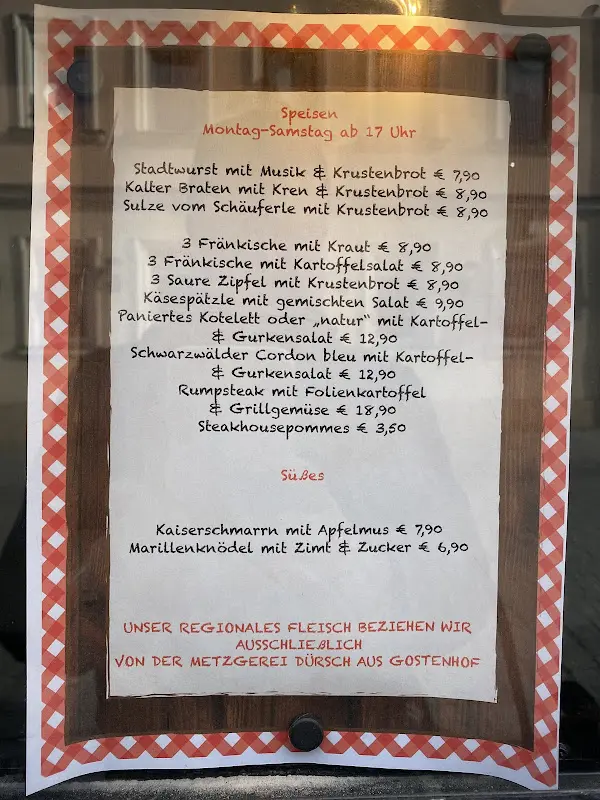 Speisen
Montag-Samstag ab 17 Uhr
Stadtwurst mit Musik & Krustenbrot € 7,90
Kalter Braten mit Kren & Krustenbrot € 8,90
Sulze vom Schäuferle mit Krustenbrot € 8,90
3 Fränkische mit Kraut € 8,90
3 Fränkische mit Kartoffelsalat € 8,90
3 Saure Zipfel mit Krustenbrot € 8,90
Käsespätzle mit gemischten Salat € 9,90
Paniertes Kotelett oder „natur“ mit Kartoffel-
& Gurkensalat € 12,90
Schwarzwälder Cordon bleu mit Kartoffel-
& Gurkensalat € 12,90
Rumpsteak mit Folienkartoffel
& Grillgemüse € 18,90
Steakhousepommes € 3,50
Süßes
Kaiserschmarrn mit Apfelmus € 7,90
Marillenknödel mit Zimt & Zucker € 6,90
UNSER REGIONALES FLEISCH BEZIEHEN WIR
AUSSCHLIEßLICH
VON DER METZGEREI DÜRSCH AUS GOSTENHOF